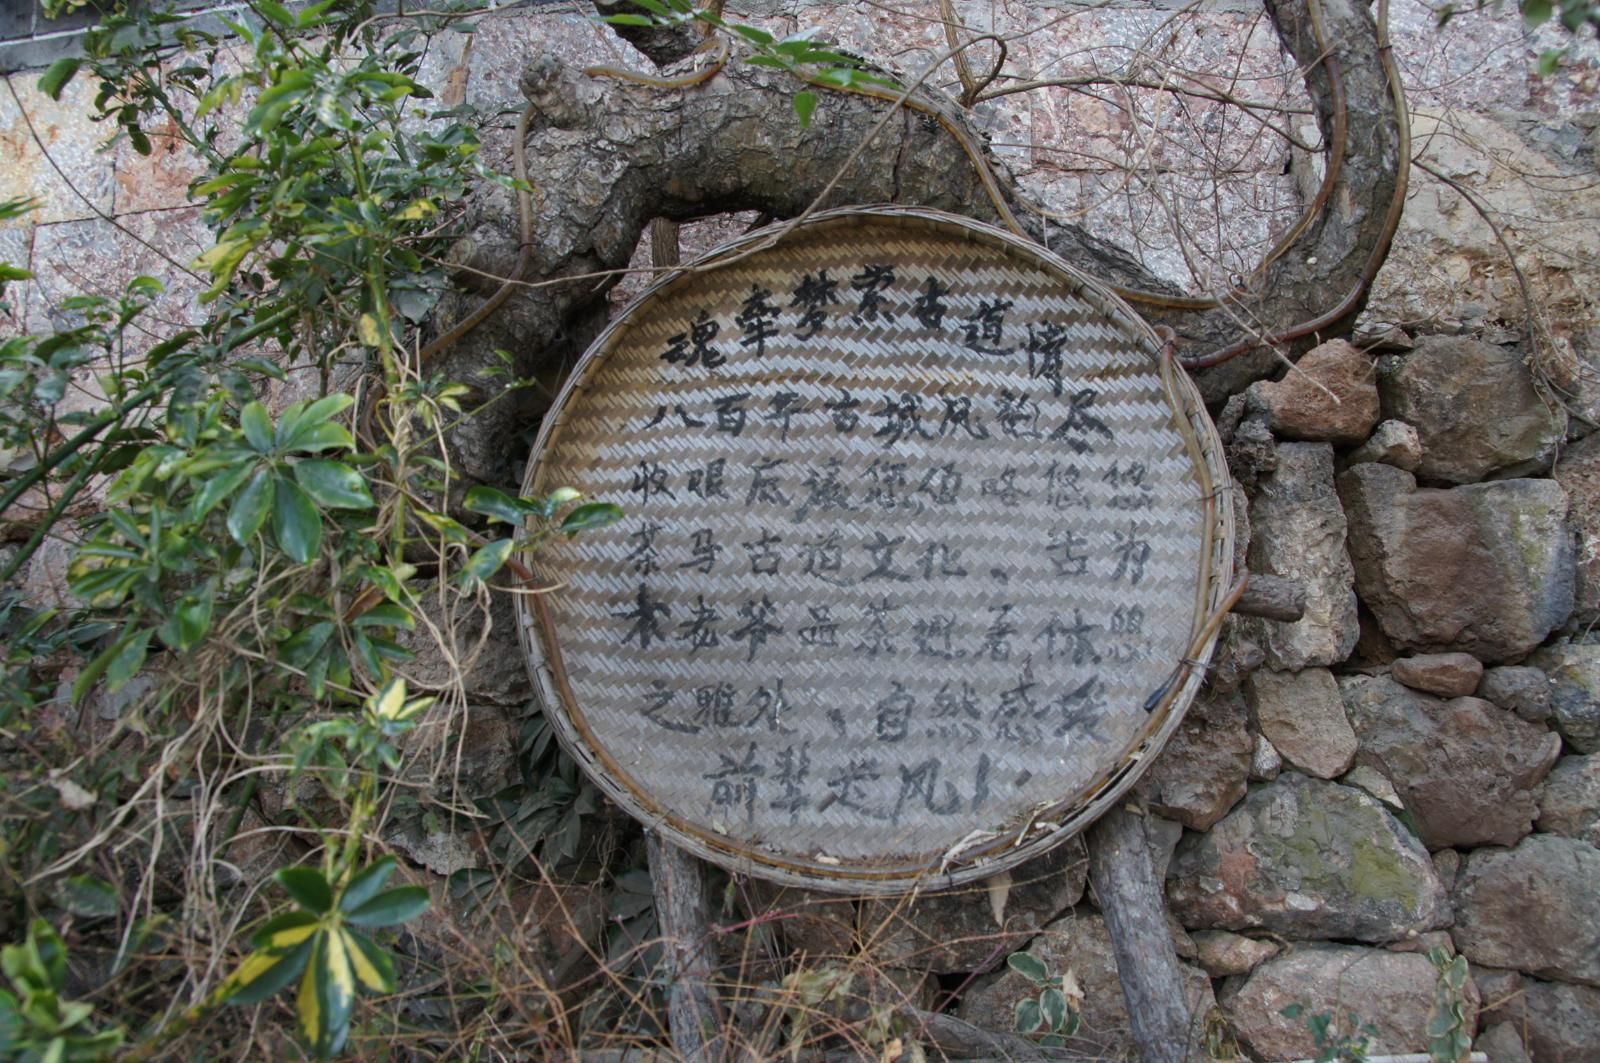 魂牵梦萦古道情
八百年古城风韵尽
收眼底让您领略悠悠
茶马古道文化、古为
木老爷品茶遐春休憩
之雅处、自然感受
前辈遗风！